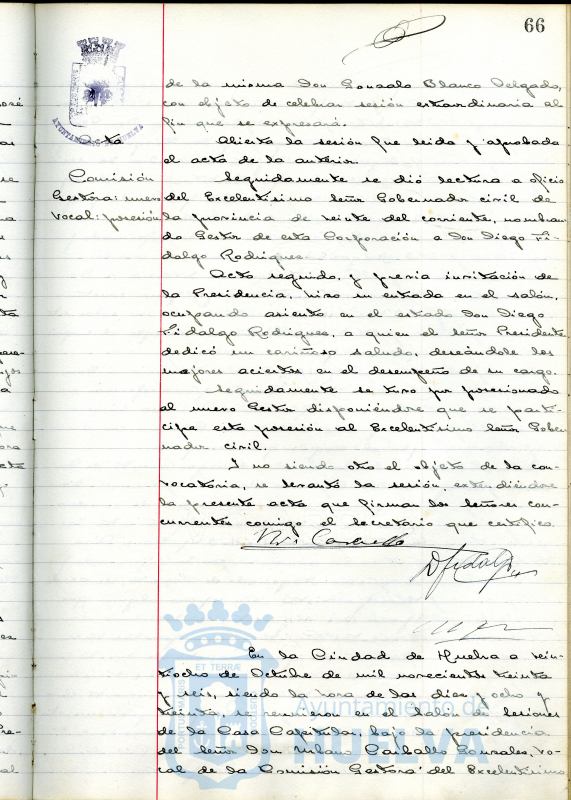 66
AYUNTAMIENTO HUELVA
Acta
Comisión
Gestora: nuevo
vocal: posesión
de la misma Don Gonzalo Blanco Delgado,
con objeto de celebrar sesión extraordinaria al
fin que se expresará.
Abierta la sesión fue leida y aprobada
el acta de la anterior.
Seguidamente se dió lectura a oficio
del Excelentísimo Señor Gobernador civil de
la provincia de veinte del corriente, nombran
do Gestor de esta Corporación a Don Diego Fi-
dalgo Rodriguez.
Acto seguido, y previa invitación de
la Presidencia, hizo su entrada en el salón,
ocupando asiento en el estrado Don Diego
Fidalgo Rodriguez, a quien el Señor Presidente
dedicó un cariñoso saludo, deseándole los
mayores aciertos en el desempeño de su cargo.
Seguidamente se tuvo por posesionado
al nuevo Gestor disponiéndose que se parti-
cipe esta posesión al Excelentísimo Señor Gober
nador civil.
Y no siendo otro el objeto de la con-
vocatoria, se levantó la sesión, extendiéndose
la presente acta que firman los señores con-
currentes conmigo el Secretario que certifico.
Carballo
D Fidalgo
En la Ciudad de Huelva a vein-
tiocho de Octubre de mil novecientos treinta
y seis, siendo la hora de las diez y ocho y
treinta, se reunieron en el Salón de sesiones
de la Casa Capitular, bajo la presidencia
del Señor Don Urbano Carballo Gonzales, Vo-
cal de la Comisión Gestora del Excelentísimo
Ayuntamiento de
HUELVA